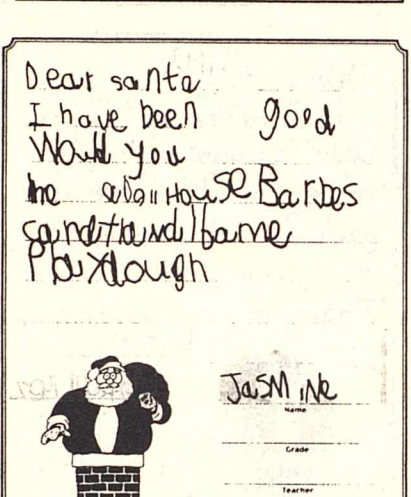 Dear santa
I have been good
Would you
me a Doll House Barbes
Playdough
JaSMiNe
Name
Grade
Teacher